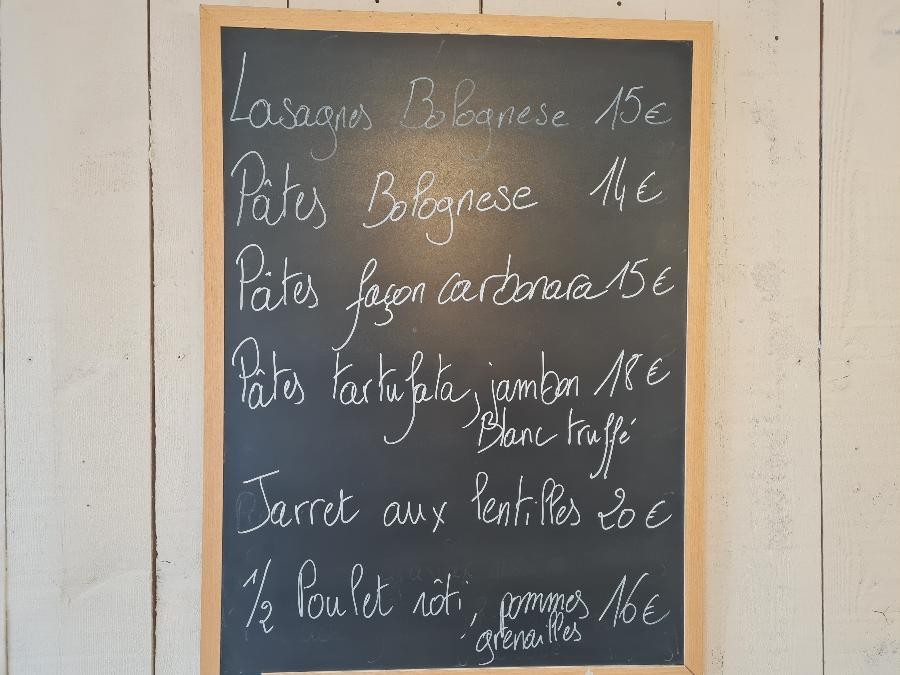 Lasagnes Bolognese 15€
Pâtes Bolognese 14€
Pâtes façon carbonara 15€
Pâtes tartufata, jambon 18€
Blanc truffé
Jarret aux lentilles 20€
1/2 Poulet rôti, pommes 16€
grenailles